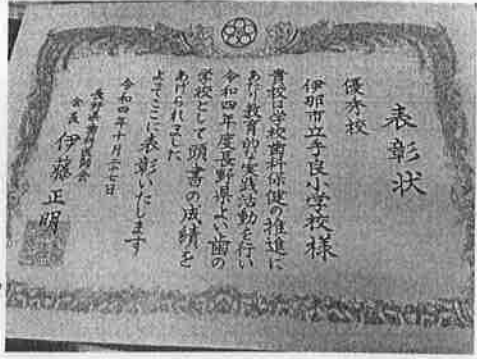 表彰状
優秀校
伊那市立手良小学校様
貴校は学校歯科保健の推進に
あたり教育的な実践活動を行い
令和四年度長野県よい歯の
学校として頭書の成績を
あげられました
よってここに表彰いたします
令和四年十月二十七日
長野県歯科医師会
会長 伊藤正明